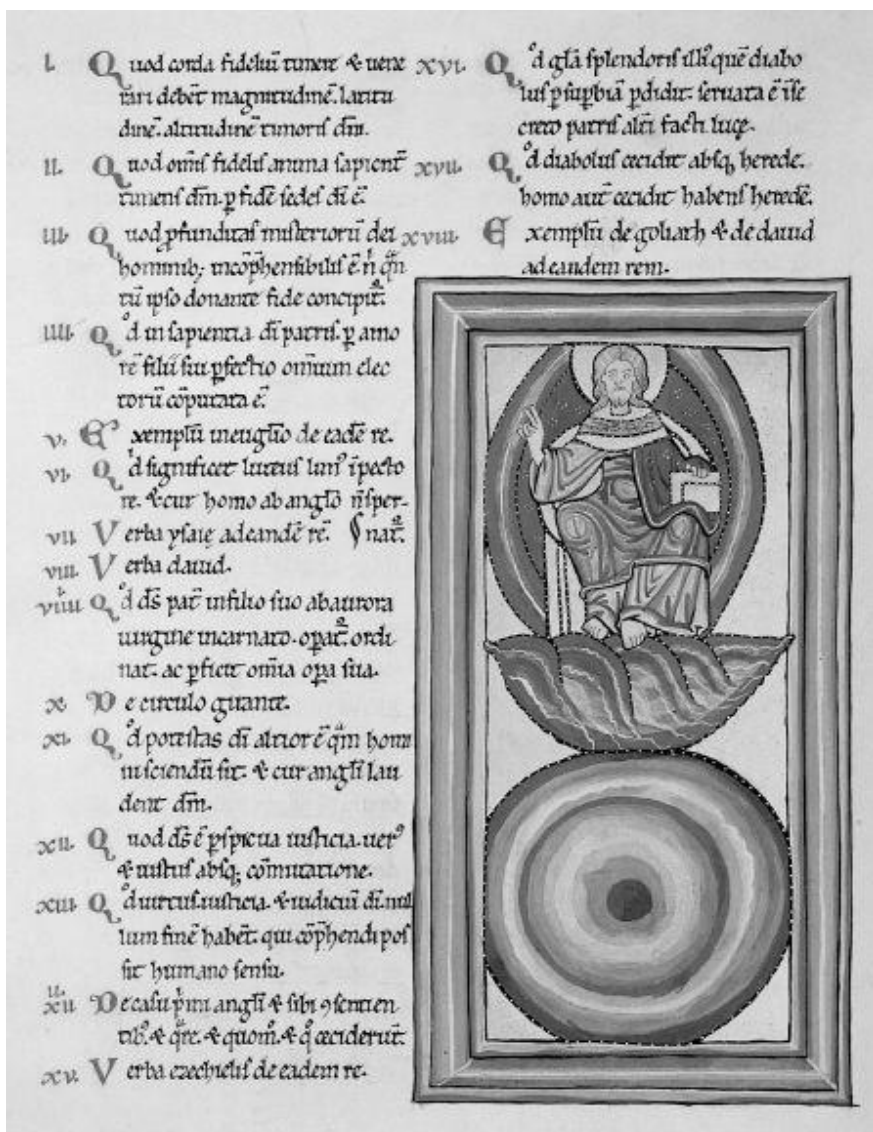 I. Quod corda fideliū timere & uene
rari debēt magnitudinē. latitu
dinē. altitudinē timoris dn̄i.
II. Quod om̄is fidelis anima sapient̄
timens dm̄. ꝑ fidē sedes dī ē.
III. Quod ꝓfunditas misteriorū dei
hominib; incōp̄hensibilis ē. n̄ q̄n
tū ipso donante fide concipit᷑.
IIII. Qd̊ in sapientia dī patris. ꝑ amo
rē filii sui ꝑfectio omnium elec
torū cōputata ē.
V. Exemplū in euglio de eadē re.
VI. Qd̊ significet luteus lim᷒ ī pecto
re. & cur homo ab anglo n̄ sper-
nat᷑.
VII. Verba ysaię ad eandē rē.
VIII. Verba dauid.
VIIII. Qd̊ ds̄ pat̄ in filio suo ab aurora
uirgine incarnato. opat᷑. ordi
nat. ac ꝑficit om̄ia opa sua.
X. De circulo girante.
XI. Qd̊ potestas dī altior ē q̄m homi
ni sciendū sit. & cur angli lau
dent dm̄.
XII. Quod ds̄ ē ꝑspicua iusticia. uer᷒
& iustus absq; cōmutatione.
XIII. Qd̊ uirtus. iusticia. & iudiciū dī nul
lum finē habēt. qui cōp̄hendi pos
sit humano sensu.
XIIII. De casu p̄mi angli & sibi ꝯsentien
tib᷒. & q̄re. & quom̊. & q̊ ceciderūt.
XV. Verba ezechielis de eadem re.
XVI. Qd̊ glā splendoris illi᷒ quē diabo
lus ꝑ supbiā pdidit. seruata ē ī se
creto patris altī facti lucę.
XVII. Qd̊ diabolus cecidit absq; herede.
homo aut̄ cecidit habens heredē.
XVIII. Exemplū de goliath & de dauid
ad eandem rem.